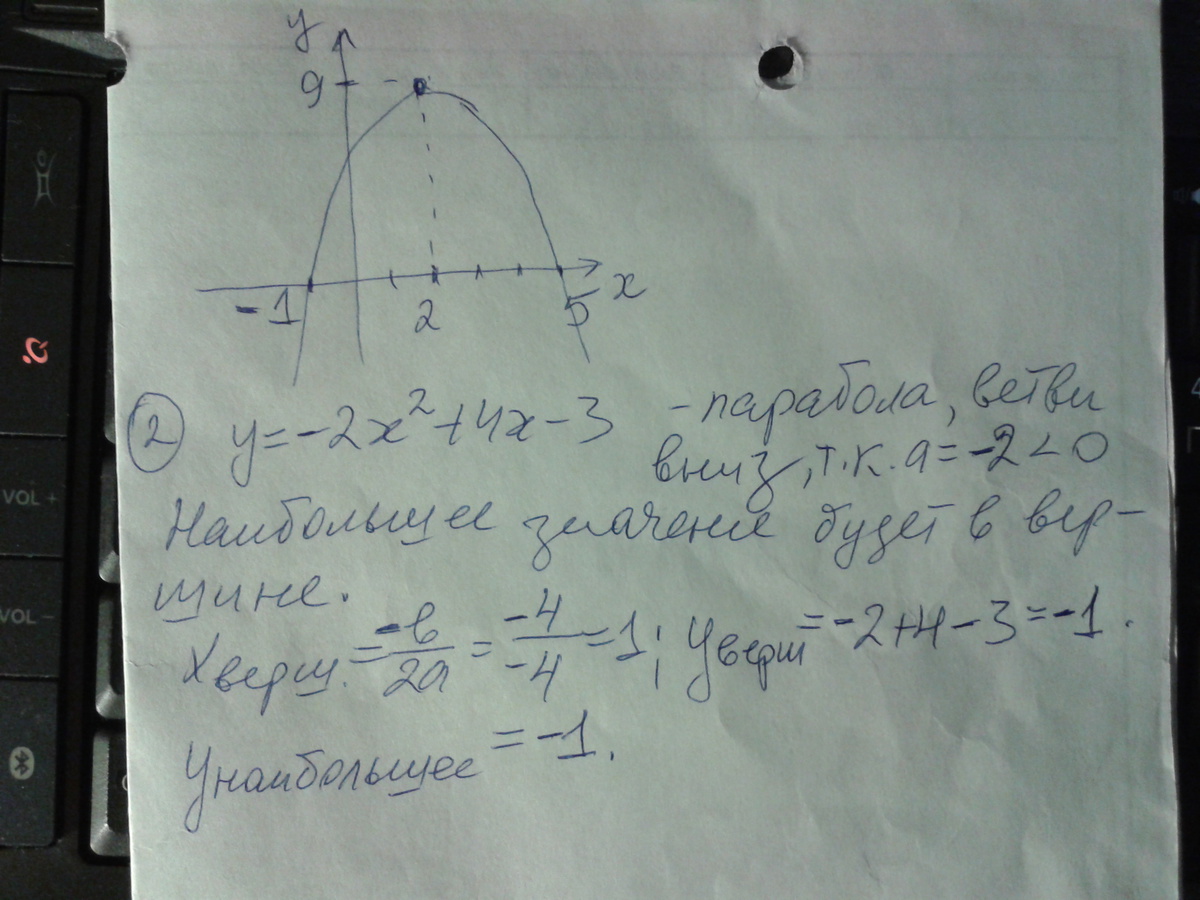 y
9
-1 2 5 x
② y=-2x²+4x-3 - парабола, ветви
вниз, т.к. a=-2<0
Наибольшее значение будет в вер-
шине.
Xверш.=-в/2a=-4/-4=1; Yверш=-2+4-3=-1.
Yнаибольшее=-1.
VOL +
VOL -